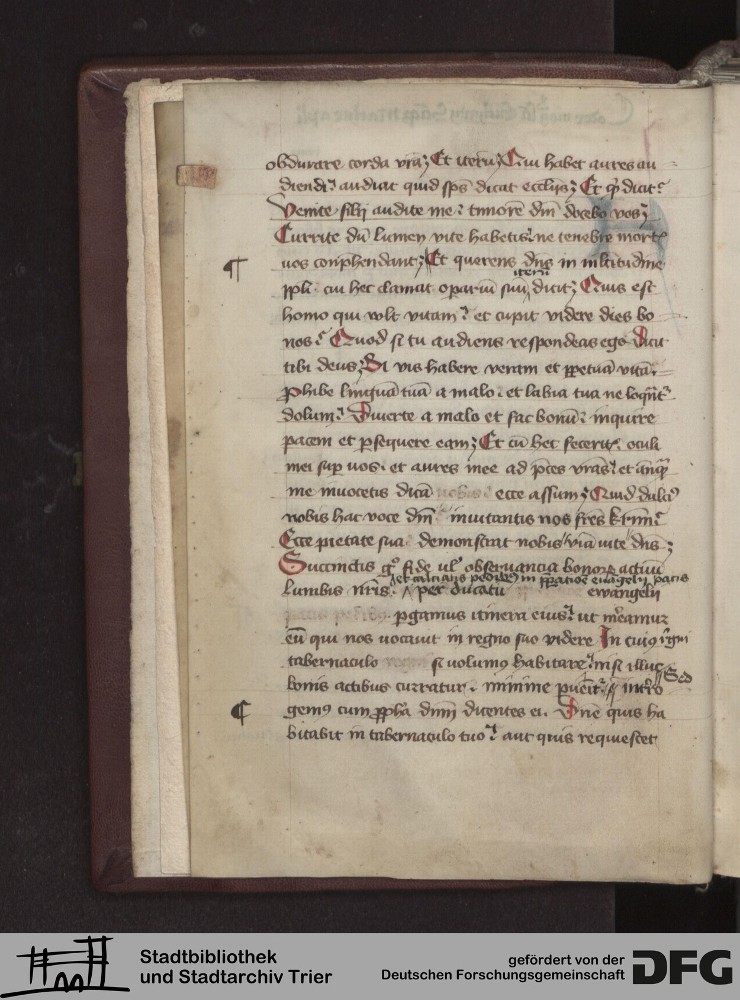 obdurare corda vr̄a Et iterū Qui habet aures au
diendi audiat quid sp̄s dicat eccl̄ijs Et qͥ dicit
Venite filij audite me timorē dm̄ docebo vos
Currite dū lumen vite habetis ne tenebre mort
uos conp̄hendant Et querens dn̄s in ml̄titudine
ppl̄i cui hec clamat oparīu suū iterū dicit Quis est
homo qui vult vitam et cupit videre dies bo
nos Quod si tu audiens respondeas ego dicit
tibi deus Si vis habere veram et ꝑpetuā vitā
ꝓhibe linguā tuā a malo et labia tua ne loqn̄t
dolum Diuerte a malo et fac bonū inquire
pacem et ꝑsequere eam Et cū hec fecerit oculi
mei suꝑ uos et aures mee ad p̄ces vr̄as et anq̄
me inuocetis dicā vobis ecce assum Quid dulci
nobis hac voce dm̄ inuitantis nos fr̄es kr̄mi
Ecce pietate sua demonstrat nobis viā vite dn̄s
Succinctis gͦ fide ul̓ obseruancia bonoꝝ actiū
et calciatis pedibꝫ in p̄ꝑatiōe ewāgelij pacis
lumbis nr̄is per ducatū ewangelij
pacis pedibꝫ ꝑgamus itinera eius ut m̄eamur
eū qui nos vocauit in regno suo videre In cuiꝯ regni
tabernaculo si volumꝯ habitare nisi illuc
bonis actibus curratur minime ꝑuēit Sed int̄ro
gemꝯ cum ꝓph̄a dn̄m dicentes ei Dn̄e quis ha
bitabit in tabernaculo tuo aut quis requiescet
Stadtbibliothek
und Stadtarchiv Trier
gefördert von der
Deutschen Forschungsgemeinschaft
DFG